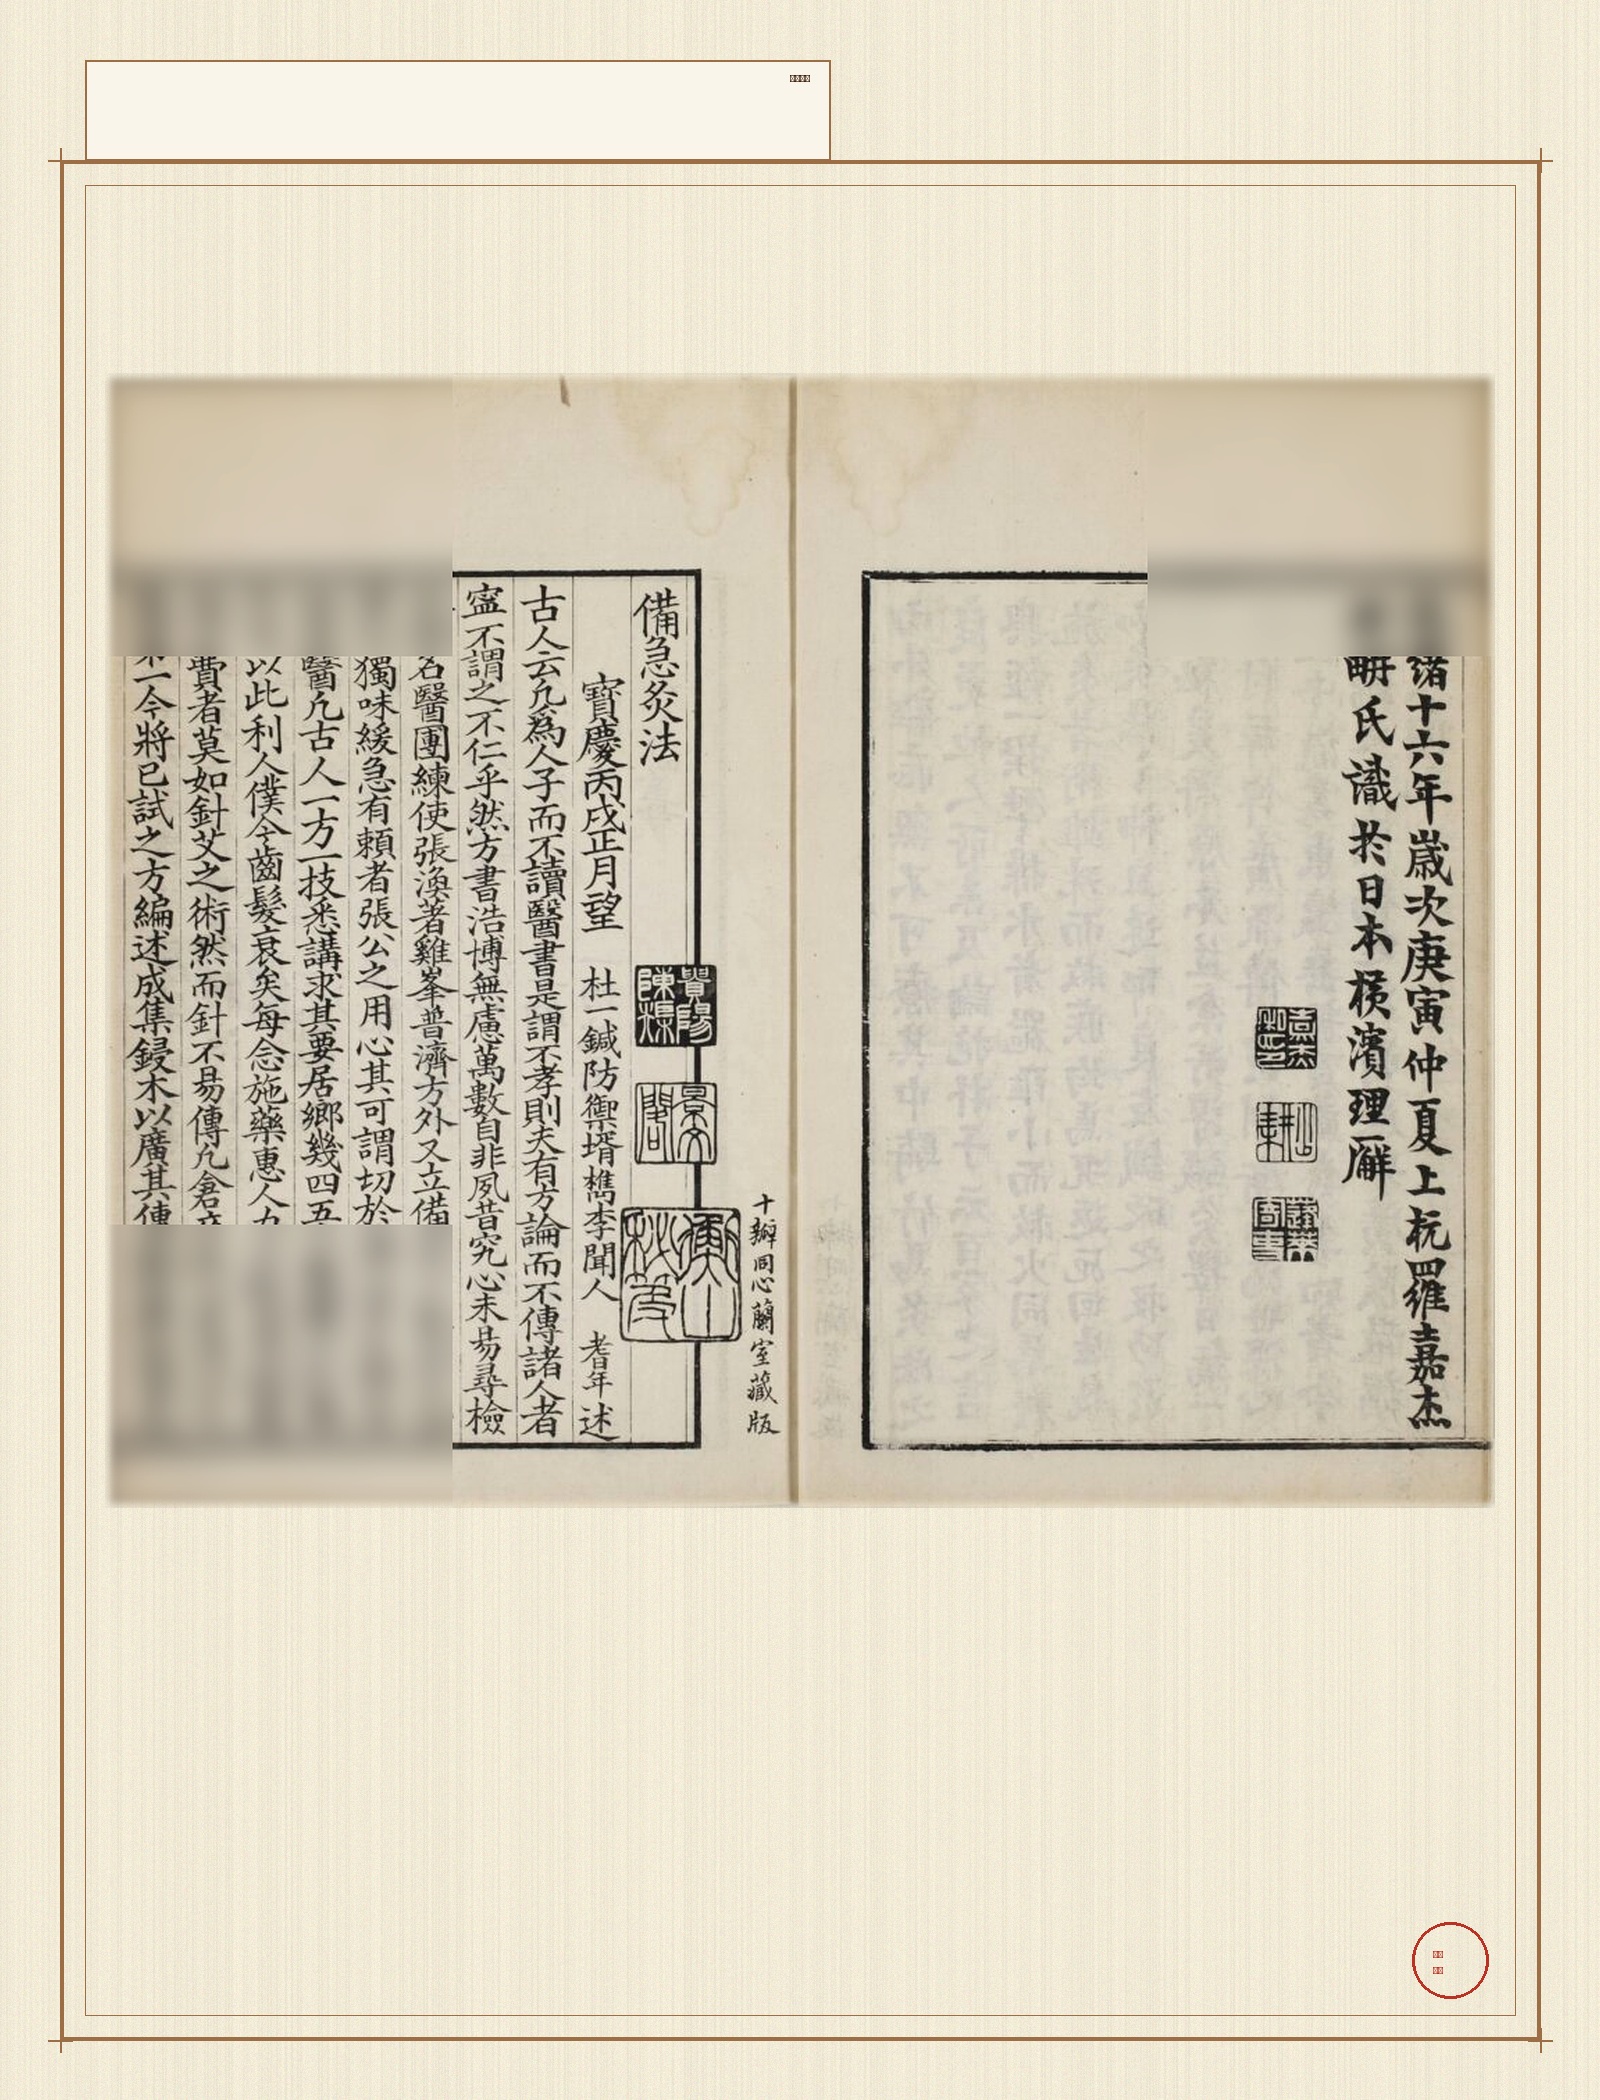 緒十六年歲次庚寅仲夏上杭羅嘉杰
畊氏識於日本橫濱理廨
十瓣同心蘭室藏版
貴陽陳榘
備急灸法
寶慶丙戌正月望 杜一鍼防禦壻檇李聞人 耆年述
古人云凡爲人子而不讀醫書是謂不孝則夫有方論而不傳諸人者
寧不謂之不仁乎然方書浩博無慮萬數自非夙昔究心未易尋檢
名醫團練使張渙著雞峯普濟方外又立備
獨味緩急有賴者張公之用心其可謂切於
醫凡古人一方一技悉講求其要居鄉幾四五
以此利人僕今齒髮衰矣每念施藥惠人力
費者莫如針艾之術然而針不易傳凡倉卒
一今將已試之方編述成集鋟木以廣其傳